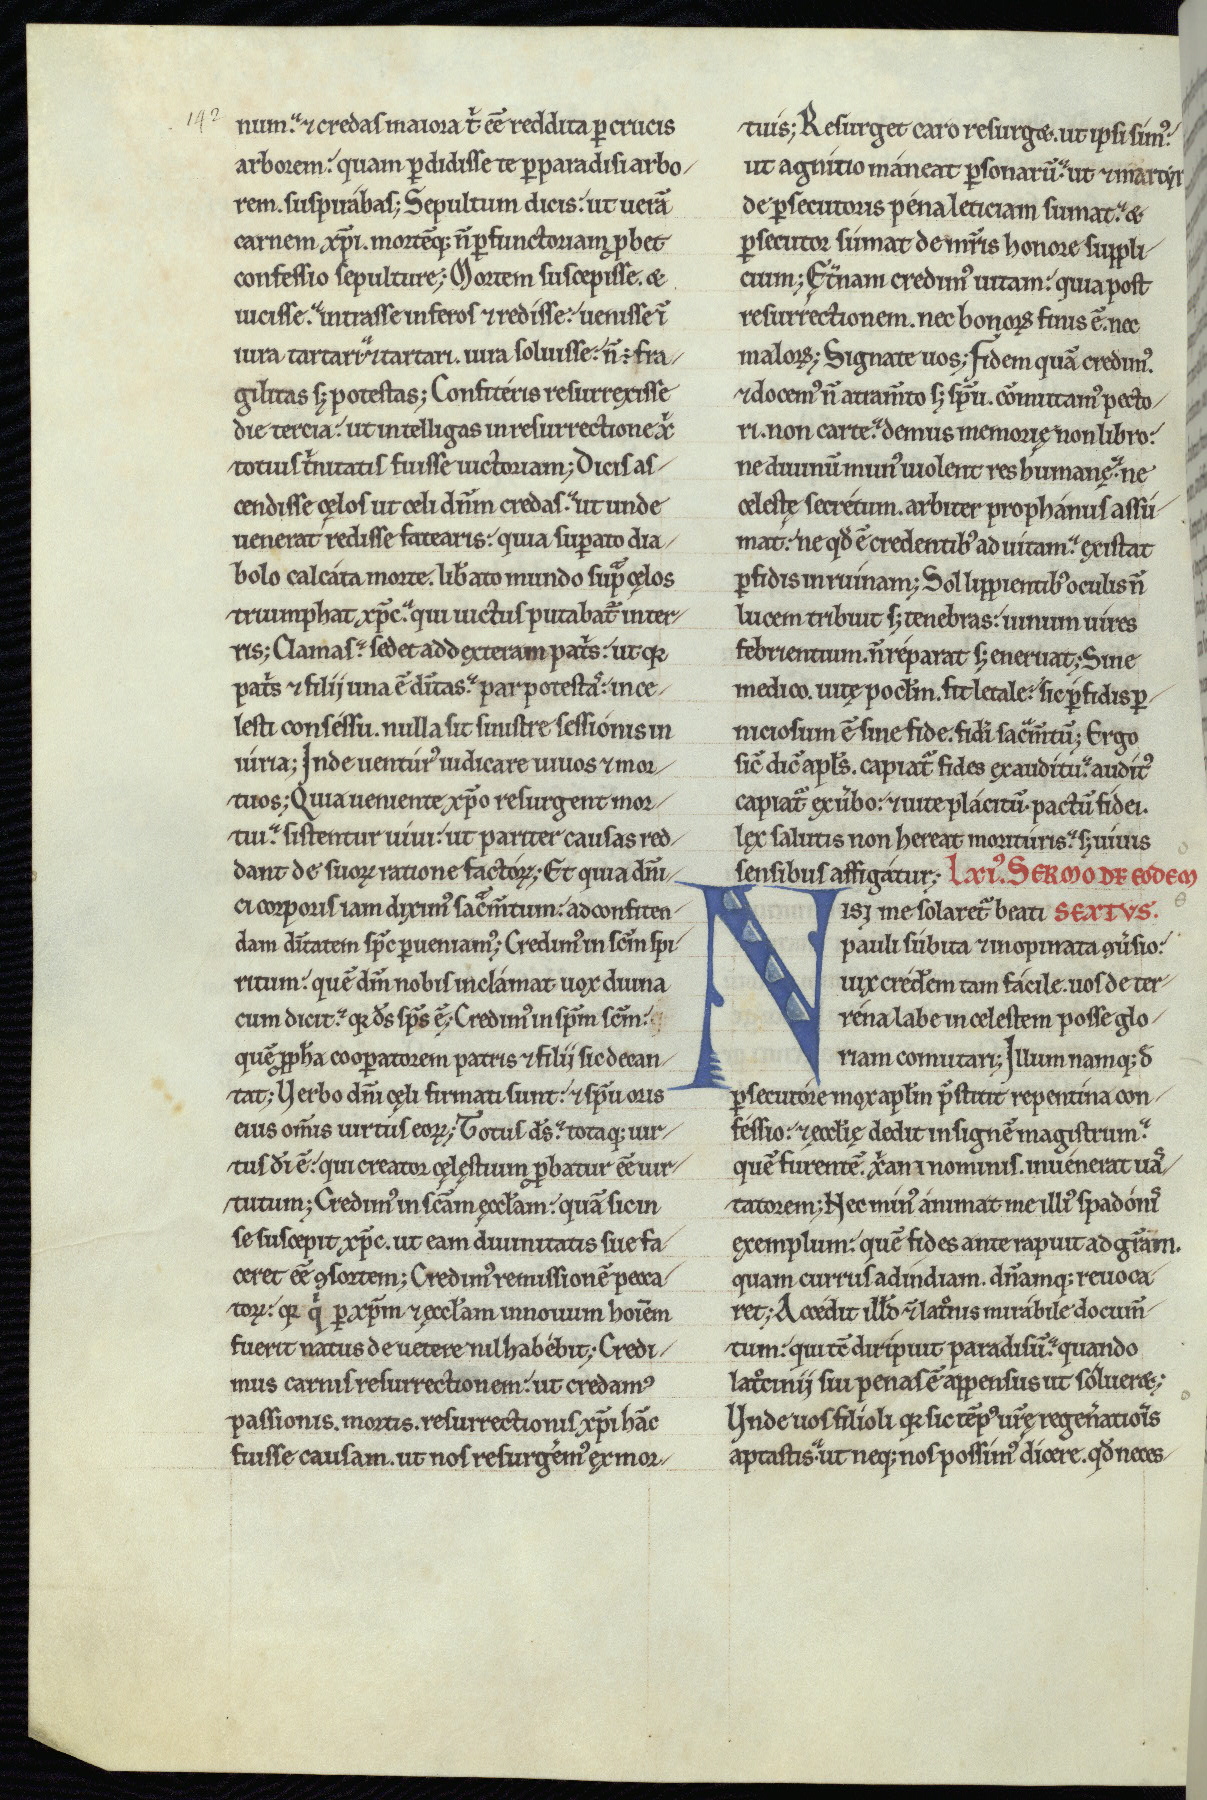 142
num. ⁊ credas maiora t᷑ eē reddita ꝑ crucis
arborem. quam ꝑdidisse te ꝑ paradisi arbo-
rem. suspirabas; Sepultum dicis. ut uerā
carnem xp̄i. mortēq; n̄ ꝑfunctoriam ꝓbet
confessio sepulture; Mortem suscepisse. &
uicisse. intrasse inferos ⁊ redisse. uenisse ī
iura tartari. ⁊ tartari. iura soluisse. n̄ ÷ fra-
gilitas sꝫ potestas; Confiteris resurrexisse
die tercia. ut intelligas in resurrectione
totius t'nitatis fuisse uictoriam; Dicis as-
cendisse cęlos ut celi dn̄m credas. ut unde
uenerat redisse fatearis. quia suꝑato dia-
bolo calcata morte. lib̄ato mundo sup̄ cęlos
triumphat xp̄c. qui uictus putabat᷑ in ter-
ris; Clamas. sedet ad dexteram pat's. ut qꝛ
pat's ⁊ filij una ē dītas. par potestas. in ce-
lesti consessu. nulla sit sinistre sessionis in
iuria; Inde uenturꝰ iudicare uiuos ⁊ mor-
tuos; Quia ueniente xp̄o resurgent mor-
tui. sistentur uiui. ut pariter causas red-
dant de suoꝝ ratione factoꝝ; Et quia dn̄i-
ci corporis iam diximꝰ sac̄mtum. ad confiten-
dam dītatem sp̄c ꝑueniamꝰ; Credimꝰ in sc̄m spi-
ritum. quē dn̄m nobis inclamat uox diuina
cum dicit. qꝛ d̄s sp̄s ē; Credimꝰ in sp̄m sc̄m.
quē ꝓph̄a cooꝑatorem patris ⁊ filij sic decan-
tat; Verbo dn̄i cęli firmati sunt. ⁊ sp̄u oris
eius om̄is uirtus eoꝝ; Totus d̄s. totaq; uir-
tus d̄i ē. qui creator cęlęstium ꝓbatur eē uir-
tutum; Credimꝰ in sc̄am ęccl̄am. quā sic in
se suscepit xp̄c. ut eam diuinitatis sue fa-
ceret eē ꝯsortem; Credimꝰ remissionē pecca-
toꝝ. qꝛ q' ꝑ xp̄m ⁊ ęccl̄am in nouum hoīem
fuerit natus de uetere nil habebit; Credi-
mus carnis resurrectionem. ut credamꝰ
passionis. mortis. resurrectionis xp̄i hāc
fuisse causam. ut nos resurg'emꝰ ex mor-
tuis; Resurget caro resurget. ut ipsi simꝰ.
ut agnitio maneat ꝑsonarū. ut ⁊ martyr
de ꝑsecutoris pena leticiam sumat. &
ꝑsecutor sumat de mr̄is honore suppli-
cium; Et'nam credimꝰ uitam. quia post
resurrectionem. nec bonoꝝ finis ē. nec
maloꝝ; Signate uos; Fidem quā credimꝰ.
⁊ docemꝰ n̄ atram̄to sꝫ sp̄u. cōmittamꝰ pecto-
ri. non carte. demus memorię non libro.
ne diuinū munꝰ uiolent res humanę. ne
celestę secretum. arbiter prophanus assu-
mat. ne qd̄ ē credentibꝰ ad uitam. existat
ꝑfidis in ruinam; Sol lippientibꝰ oculis n̄
lucem tribuit sꝫ tenebras. uinum uires
febrientium. n̄ reparat sꝫ eneruat; Sine
medico. uitę pocl̄m. fit letale. sic ꝑfidis ꝑ-
niciosum ē sine fide. fidei sac̄mtū; Ergo
sic̄ dic̄ apl̄s. capiat᷑ fides ex auditu. auditꝰ
capiat᷑ ex ūbo. ⁊ uite placitū. pactū fidei.
lex salutis non hereat morituris. sꝫ uiuis
sensibus affigatur; Lxiꝰ. SERMO DE EODEM
NISI me solaret᷑ beati SEXTVS.
pauli subita ⁊ inopinata ꝯuersio.
uix crederem tam facile. uos de ter-
rena labe in celestem posse glo-
riam comutari; Illum namq; d̄
ꝑsecutore mox apl̄m p̄stitit repentina con-
fessio. ⁊ ęccl̄ię dedit insignē magistrum.
quē furentē. x'ani nominis. inuenerat uas-
tatorem; Nec minꝰ animat me illiꝰ spadonis
exemplum. quē fides ante rapuit ad gr̄am.
quam currus ad indiam. dn̄amq; reuoca-
ret; Accedit illđ ⁊ latronis mirabile docum̄-
tum. qui tē diripuit paradisū. quando
latrocinij sui penas ē appensus ut solueret;
Vnde uos filioli qꝛ sic tēpꝰ ur̄ę regen'atiōis
aptastis. ut neq; nos possimꝰ dicere. qd̄ neces-